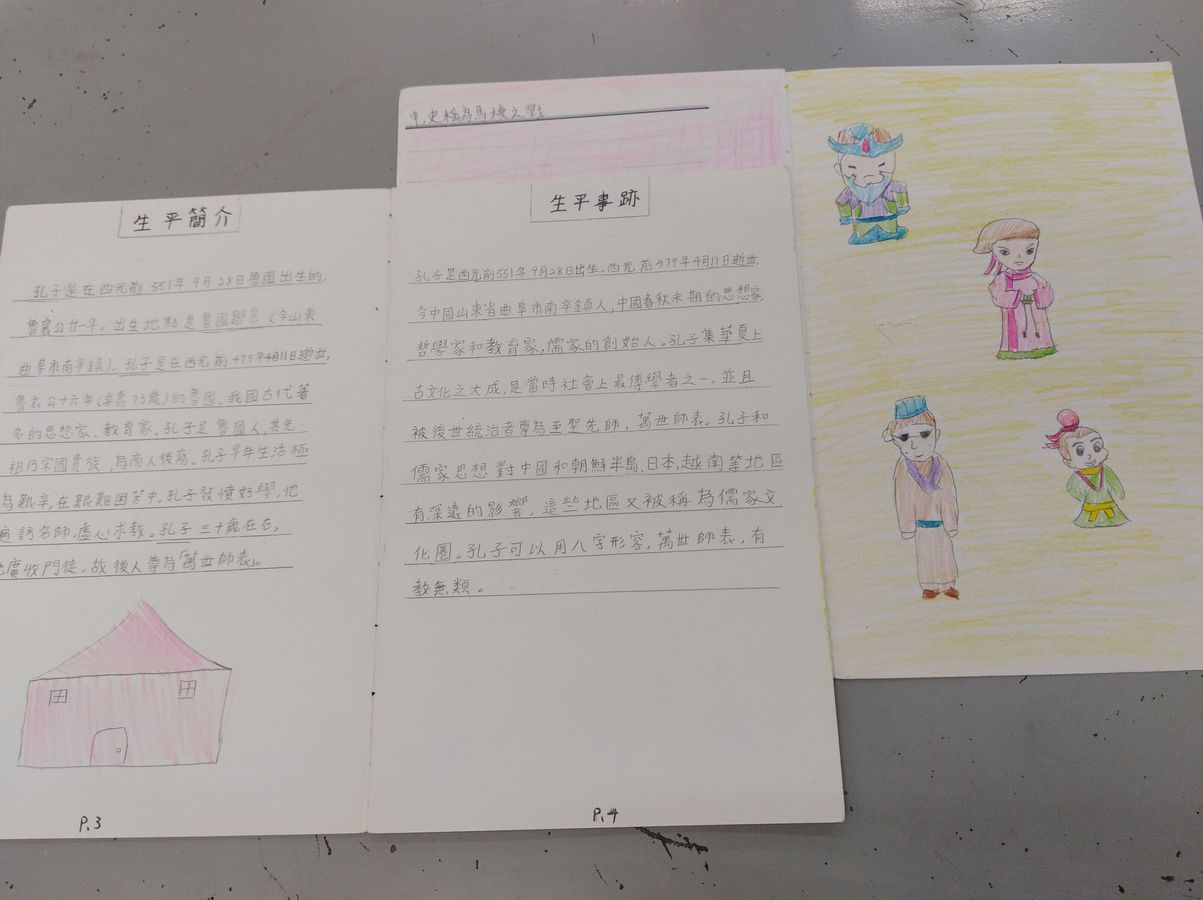 中,史稱為馬陵之戰
生平簡介
孔子是在西元前551年9月28日魯國出生的,
魯襄公廿一年。出生地點是魯國鄹邑(今山東
曲阜市南辛鎮)。孔子是在西元前479年4月11日逝世,
魯哀公十六年(享壽73歲)的魯國,我國古代著
名的思想家、教育家。孔子是魯國人,其先
祖乃宋國貴族,為商人後裔。孔子早年生活極
為艱辛,在艱難困苦中,孔子發憤好學,他
遍訪名師,虛心求教。孔子三十歲在右,
廣收門徒。故後人尊為「萬世師表」。
P.3
生平事跡
孔子是西元前551年9月28日出生,西元前479年4月11日逝世,
今中國山東省曲阜市南辛鎮人,中國春秋末期的思想家
哲學家和教育家,儒家的創始人。孔子集華夏上
古文化之大成,是當時社會上最博學者之一,並且
被後世統治者尊為至聖先師、萬世師表。孔子和
儒家思想對中國和朝鮮半島,日本,越南等地區
有深遠的影響,這些地區又被稱為儒家文
化圈。孔子可以用八字形容,萬世師表,有
教無類。
P.4